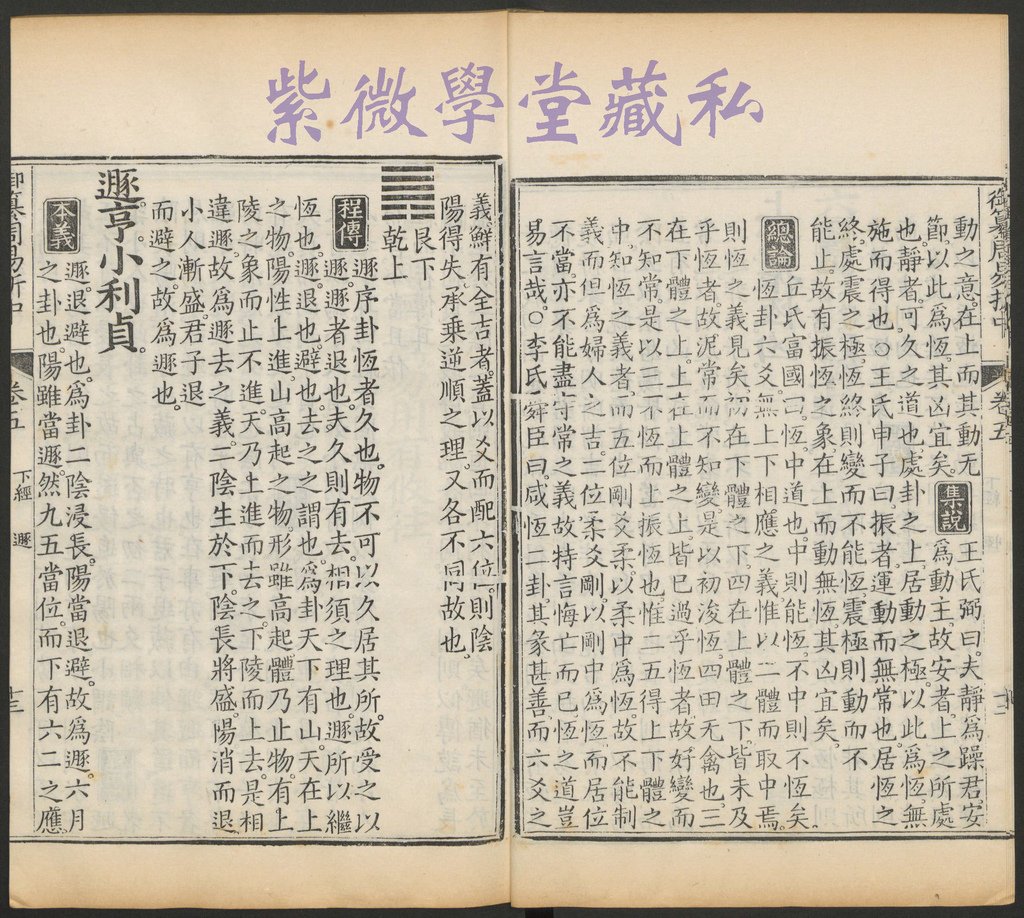 紫微學堂藏私
御纂周易折中
卷五
動之意在上而其動无
節以此為恆其凶宜矣 集說 王氏弼曰夫靜為躁君安
為動主故安者上之所處
也靜者可久之道也處卦之上居動之極以此為恆無
施而得也○王氏申子曰振者運動而無常也居恆之
終處震之極恆終則變而不能恆震極則動而不
能止故有振恆之象在上而動無恆其凶宜矣
總論 丘氏富國曰恆中道也中則能恆不中則不恆矣
恆卦六爻無上下相應之義惟以二體而取中焉
則恆之義見矣初在下體之下四在上體之下皆未及
乎恆者故泥常而不知變是以初浚恆四田无禽也三
在下體之上上在上體之上皆已過乎恆者故好變而
不知常是以三不恆而上振恆也惟二五得上下體之
中知恆之義者而五位剛爻柔以柔中為恆故不能制
義而但為婦人之吉二位柔爻剛以剛中為恆而居位
不當亦不能盡守常之義故特言悔亡而已恆之道豈
易言哉○李氏舜臣曰咸恆二卦其象甚善而六爻之
義鮮有全吉者蓋以爻而配六位則陰
陽得失承乘逆順之理又各不同故也
艮下
乾上
程傳 遯序卦恆者久也物不可以久居其所故受之以
遯遯者退也夫久則有去相須之理也遯所以繼
恆也遯退也避也去之之謂也為卦天下有山天在上
之物陽性上進山高起之物形雖高起體乃止物有上
陵之象而止不進天乃上進而去之下陵而上去是相
違遯故為遯去之義二陰生於下陰長將盛陽消而退
小人漸盛君子退
而避之故為遯也
遯亨小利貞
本義 遯退避也為卦二陰浸長陽當退避故為遯六月
之卦也陽雖當遯然九五當位而下有六二之應
御纂周易折中
卷五
下經 遯
十三